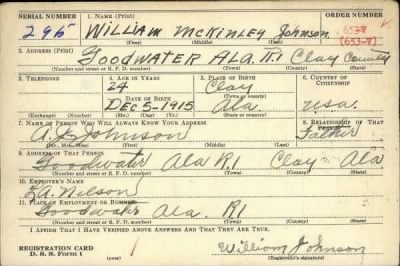 SERIAL NUMBER 1. NAME (Print) ORDER NUMBER
295 William McKinley Johnson
(First) (Middle) (Last)
2. ADDRESS (Print)
Goodwater Ala. R1 Clay County
(Number and street or R. F. D. number) (Town) (County) (State)
3. TELEPHONE 4. AGE IN YEARS 5. PLACE OF BIRTH 6. COUNTRY OF CITIZENSHIP
24 Clay
DATE OF BIRTH (Town or county)
Dec-5-1915 Ala. USA.
(Exchange) (Number) (Mo.) (Day) (Yr.) (State or country)
7. NAME OF PERSON WHO WILL ALWAYS KNOW YOUR ADDRESS 8. RELATIONSHIP OF THAT PERSON
Johnson Father
(Mr., Mrs., Miss) (First) (Middle) (Last)
9. ADDRESS OF THAT PERSON
Goodwater Ala R1 Clay Ala
(Number and street or R. F. D. number) (Town) (County) (State)
10. EMPLOYER'S NAME
Nelson
11. PLACE OF EMPLOYMENT OR BUSINESS
Goodwater Ala. R1
(Number and street or R. F. D. number) (Town) (County) (State)
I AFFIRM THAT I HAVE VERIFIED ABOVE ANSWERS AND THAT THEY ARE TRUE.
REGISTRATION CARD
D. S. S. Form 1 William Johnson
(Registrant's signature)